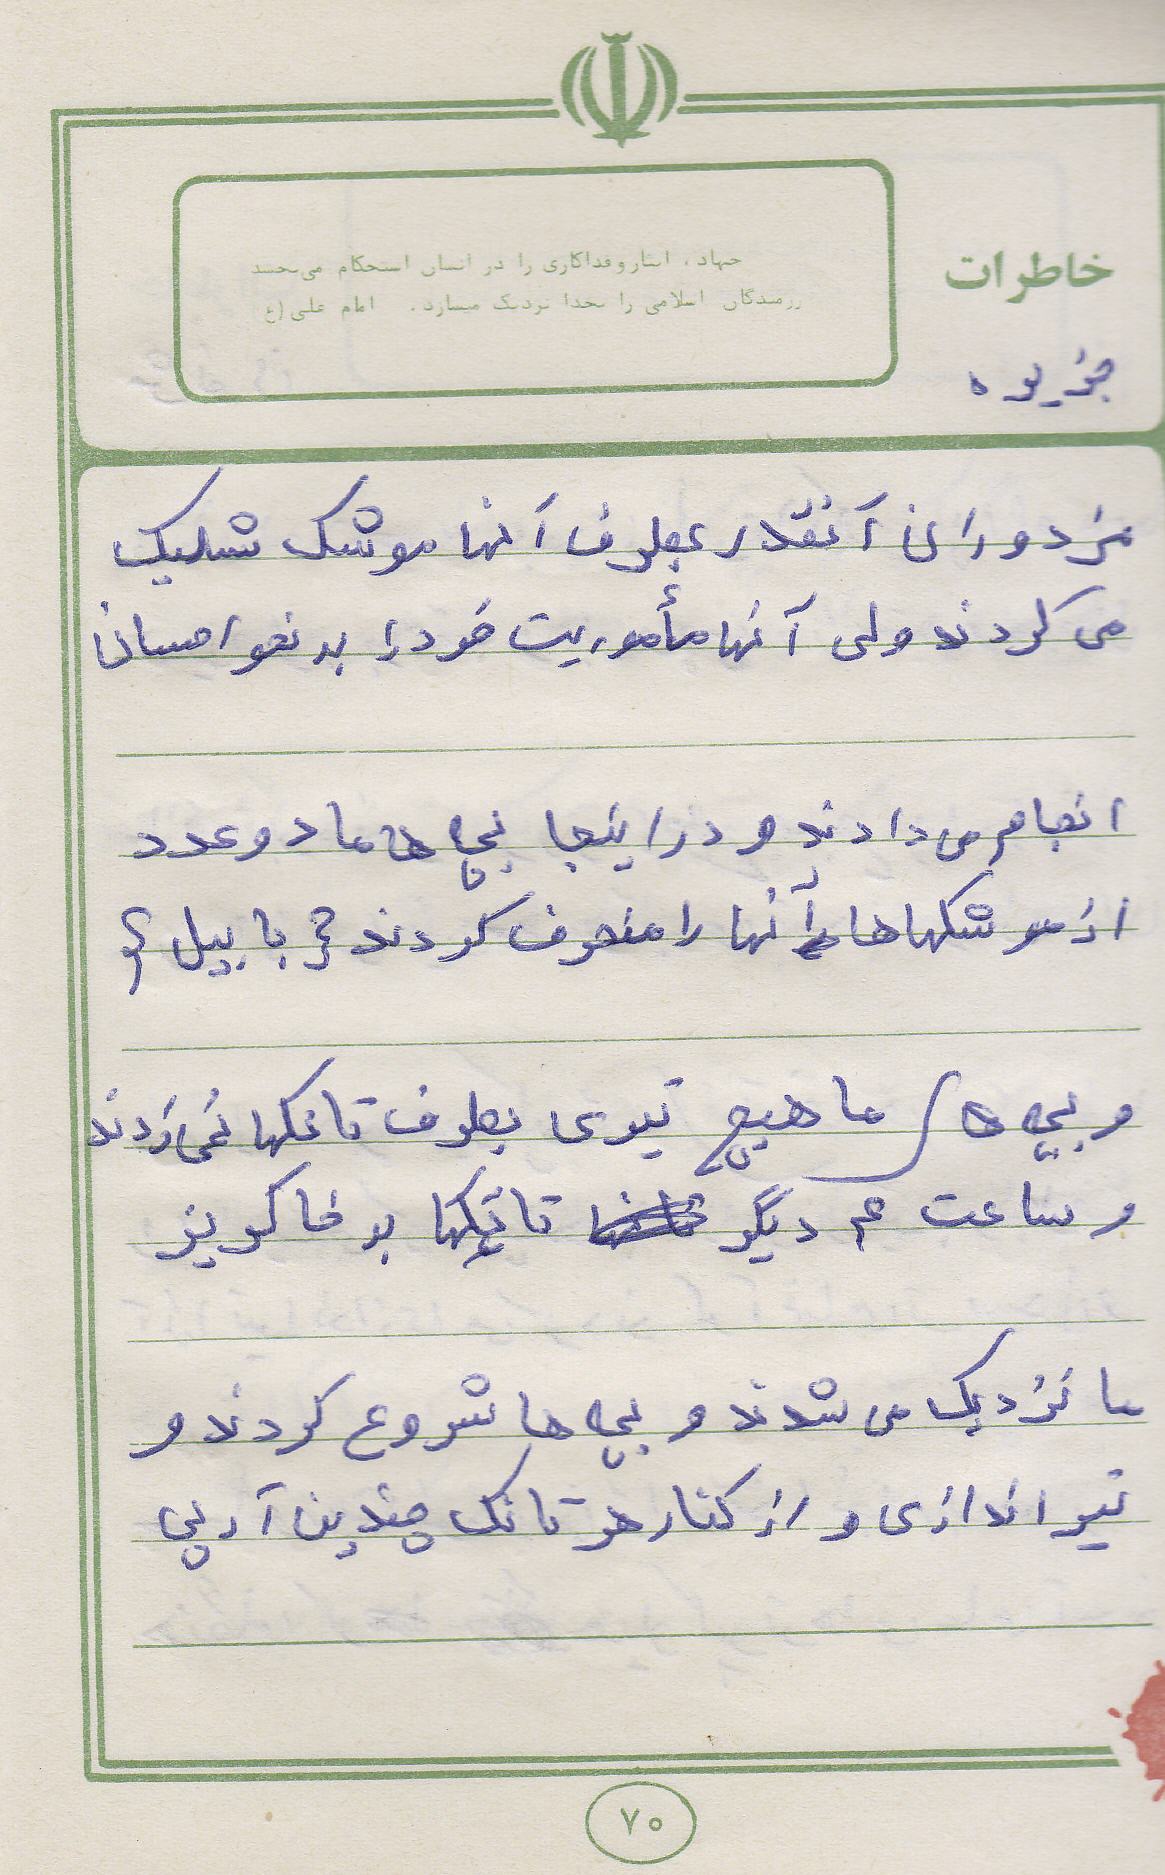 خاطرات
جهاد، ایثار و فداکاری را در انسان استحکام می‌بخشد
رزمندگان اسلامی را بخدا نزدیک میسازد. امام علی (ع
جزیره
مزدوران آنقدر بطرف آنها موشک شلیک
می کردند ولی آنها مأموریت خود را به نحو احسان
انجام می دادند و در اینجا بچه ها ما دو عدد
از موشکهاها آنها را منحرف کردند ؟ با بیل ؟
و بچه ها ما هیچ تیری بطرف تانکها نمی زدند
و ساعت ۴ دیگر تانکها به خاکریز
ما نزدیک می شدند و بچه ها شروع کردند و
تیر اندازی و از کنار هر تانک چندین آر پی
۷۰